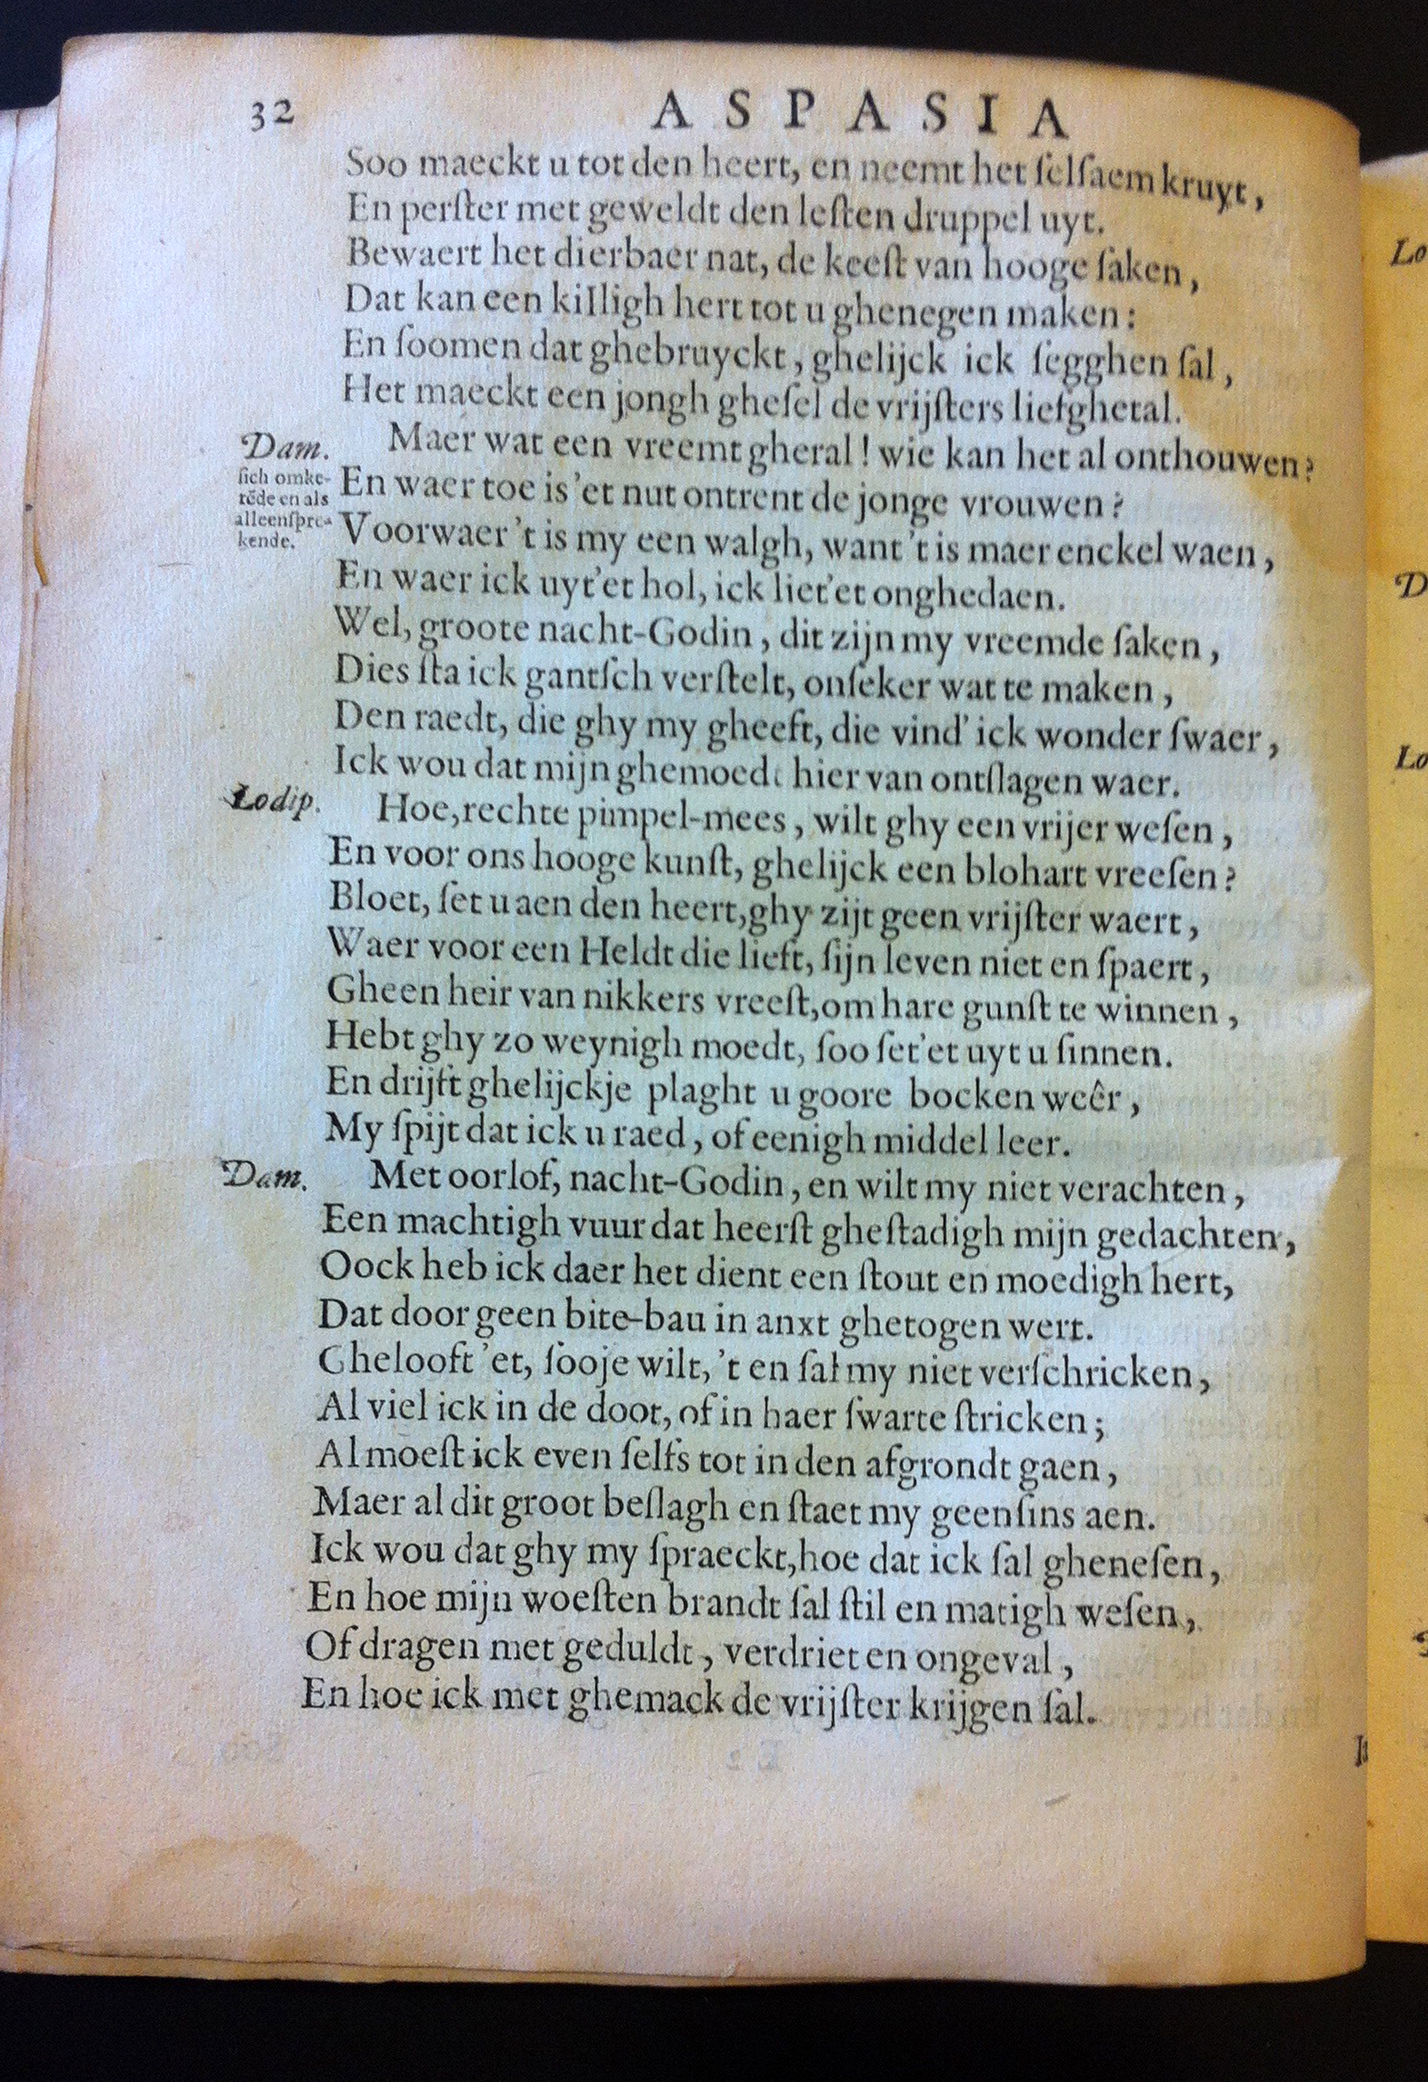 32 ASPASIA
Soo maeckt u tot den heert, en neemt het ſelſaem kruyt,
En perſter met geweldt den leſten druppel uyt.
Bewaert het dierbaer nat, de keeſt van hooge ſaken,
Dat kan een killigh hert tot u ghenegen maken:
En ſoomen dat ghebruyckt, ghelijck ick ſegghen ſal,
Het maeckt een jongh gheſel de vrijſters liefghetal.
Dam. Maer wat een vreemt gheral! wie kan het al onthouwen?
ſich omke-
rēde en als
alleenſpre-
kende.
En waer toe is 'et nut ontrent de jonge vrouwen?
Voorwaer 't is my een walgh, want 't is maer enckel waen,
En waer ick uyt'et hol, ick liet'et onghedaen.
Wel, groote nacht-Godin, dit zijn my vreemde ſaken,
Dies ſta ick gantſch verſtelt, onſeker wat te maken,
Den raedt, die ghy my gheeft, die vind' ick wonder ſwaer,
Ick wou dat mijn ghemoedt hier van ontſlagen waer.
Lodip. Hoe, rechte pimpel-mees, wilt ghy een vrijer weſen,
En voor ons hooge kunſt, ghelijck een blohart vreeſen?
Bloet, ſet u aen den heert, ghy zijt geen vrijſter waert,
Waer voor een Heldt die lieft, ſijn leven niet en ſpaert,
Gheen heir van nikkers vreeſt, om hare gunſt te winnen,
Hebt ghy zo weynigh moedt, ſoo ſet'et uyt u ſinnen.
En drijft ghelijckje plaght u goore bocken weêr,
My ſpijt dat ick u raed, of eenigh middel leer.
Dam. Met oorlof, nacht-Godin, en wilt my niet verachten,
Een machtigh vuur dat heerſt gheſtadigh mijn gedachten,
Oock heb ick daer het dient een ſtout en moedigh hert,
Dat door geen bite-bau in anxt ghetogen wert.
Ghelooft 'et, ſooje wilt, 't en ſal my niet verſchricken,
Al viel ick in de doot, of in haer ſwarte ſtricken;
Al moeſt ick even ſelfs tot in den afgrondt gaen,
Maer al dit groot beſlagh en ſtaet my geenſins aen.
Ick wou dat ghy my ſpraeckt, hoe dat ick ſal gheneſen,
En hoe mijn woeſten brandt ſal ſtil en matigh weſen,
Of dragen met geduldt, verdriet en ongeval,
En hoe ick met ghemack de vrijſter krijgen ſal.
Lo
D
Lo